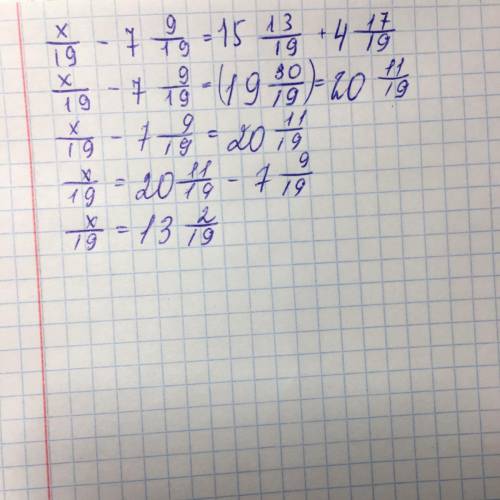 x/19 - 7 9/19 = 15 13/19 + 4 17/19
x/19 - 7 9/19 = (19 30/19) = 20 11/19
x/19 - 7 9/19 = 20 11/19
x/19 = 20 11/19 - 7 9/19
x/19 = 13 2/19